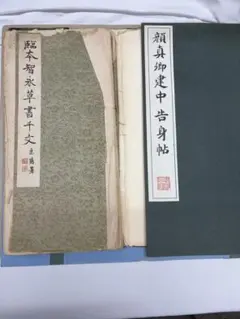 顔真卿建中告身帖
臨本智永草書千文